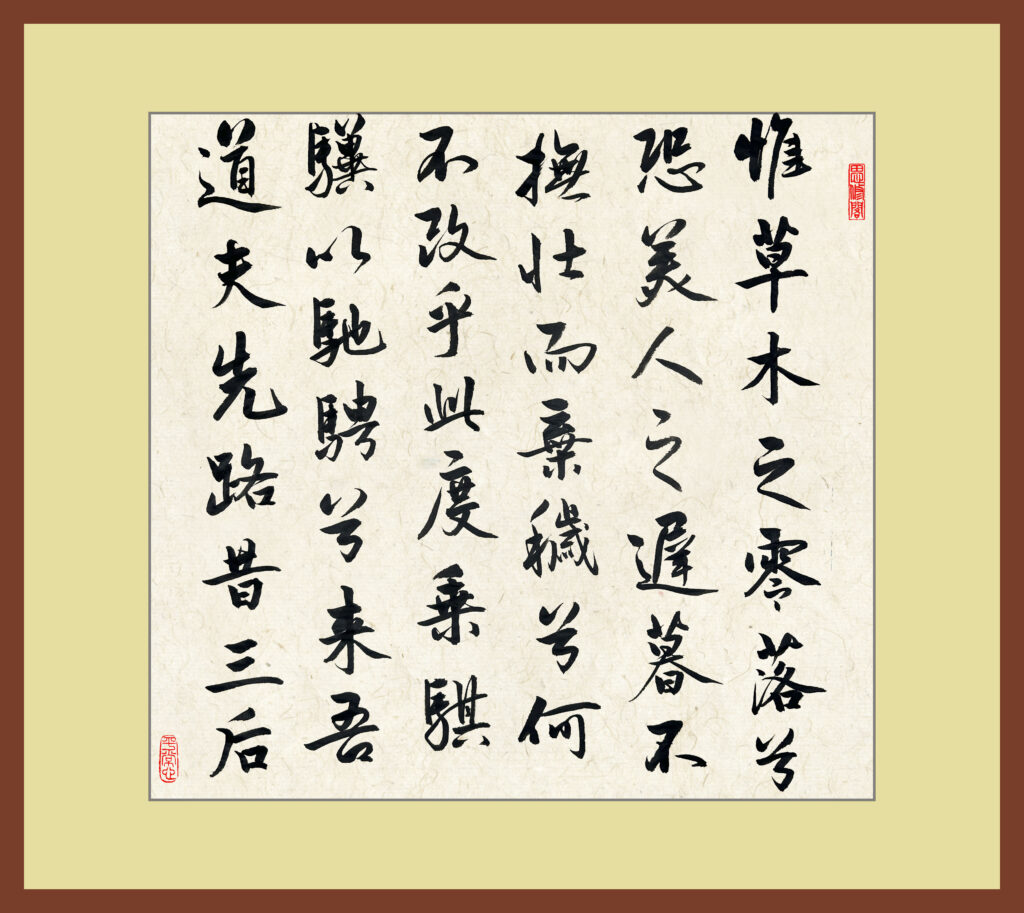 惟草木之零落兮
恐美人之遲暮不
撫壮而棄穢兮何
不改乎此度乘騏
驥以馳騁兮来吾
道夫先路昔三后
平常心